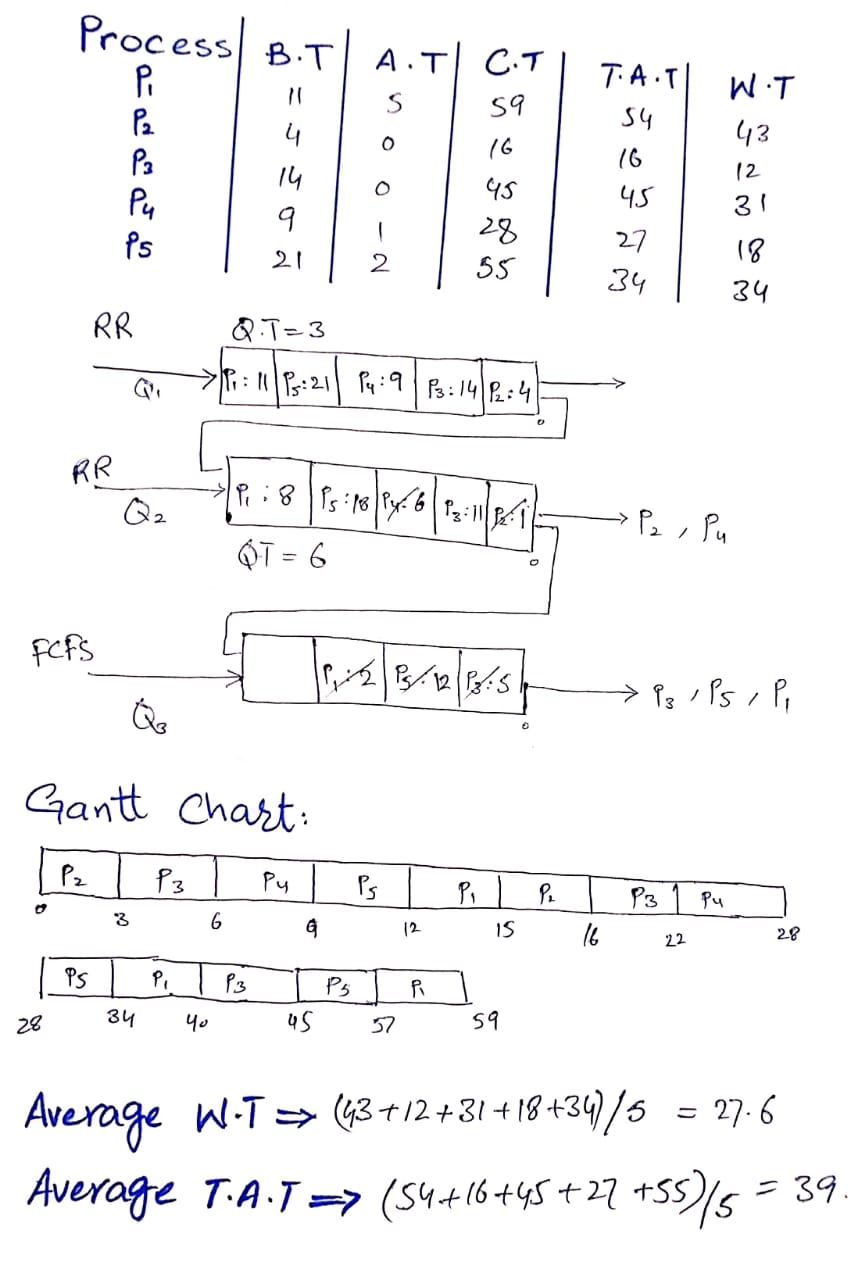 Process B.T A.T C.T T.A.T W.T
P1 11 5 59 54 43
P2 4 0 16 16 12
P3 14 0 45 45 31
P4 9 1 28 27 18
P5 21 2 55 34 34
RR Q.T=3
Q1 P1:11 P5:21 P4:9 P3:14 P2:4
RR
Q2 P1:8 P5:18 P4:6 P3:11 P2:1 P2, P4
QT=6
FCFS
Q3 P1:2 P5:12 P3:5 P3, P5, P1
Gantt Chart:
P2 P3 P4 P5 P1 P2 P3 P4
0 3 6 9 12 15 16 22 28
P5 P1 P3 P5 P1
28 34 40 45 57 59
Average W.T ⇒ (43+12+31+18+34)/5 = 27.6
Average T.A.T ⇒ (54+16+45+27+55)/5 = 39.